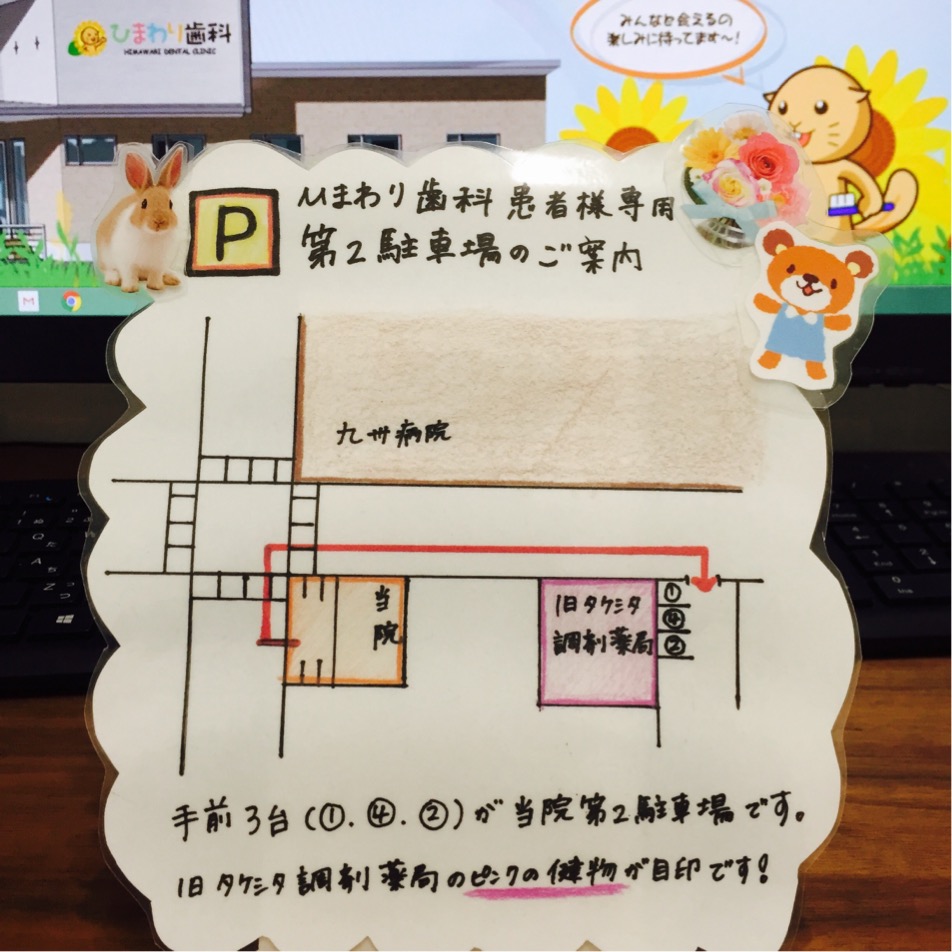 ひまわり歯科
HIMAWARI DENTAL CLINIC
みんなと会えるの
楽しみに待ってます〜!
P
ひまわり歯科患者様専用
第2駐車場のご案内
九州病院
当院
旧タケシタ
調剤薬局
①
④
②
手前3台(①.④.②)が当院第2駐車場です。
旧タケシタ調剤薬局のピンクの建物が目印です!